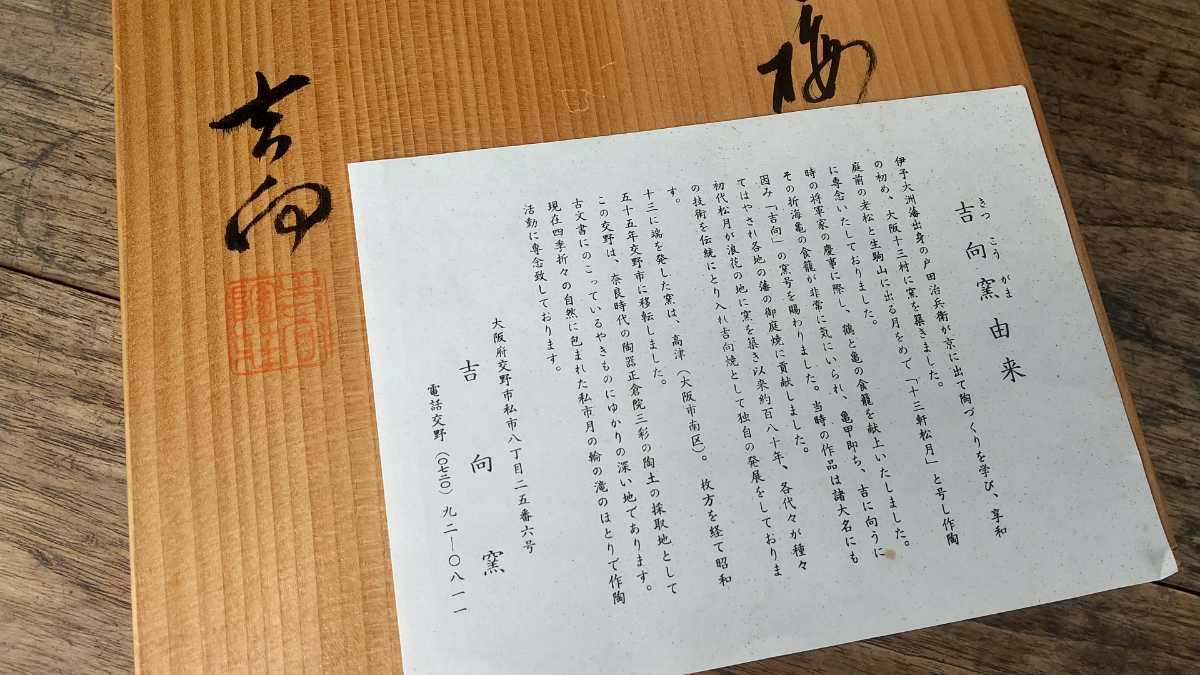 梅
吉向
きっ こう がま
吉向窯由来
伊予大洲藩出身の戸田治兵衛が京に出て陶づくりを学び、享和
の初め、大阪十三村に窯を築きました。
庭前の老松と生駒山に出る月をめで「十三軒松月」と号し作陶
に専念いたしておりました。
時の将軍家の慶事に際し、鶴と亀の食籠を献上いたしました。
その折海亀の食籠が非常に気にいられ、亀甲即ち、吉に向うに
因み「吉向」の窯号を賜わりました。当時の作品は諸大名にも
てはやされ各地の藩の御庭焼に貢献しました。
初代松月が浪花の地に窯を築き以来約百八十年、各代々が種々
の技術を伝統にとり入れ吉向焼として独自の発展をしておりま
す。
十三に端を発した窯は、高津（大阪市南区）。枚方を経て昭和
五十五年交野市に移転しました。
この交野は、奈良時代の陶器正倉院三彩の陶土の採取地として
古文書にのこっているやきものにゆかりの深い地であります。
現在四季折々の自然に包まれた私市月の輪の滝のほとりで作陶
活動に専念致しております。
大阪府交野市私市八丁目二五番六号
吉向窯
電話交野（〇七二〇）九二―〇八一一